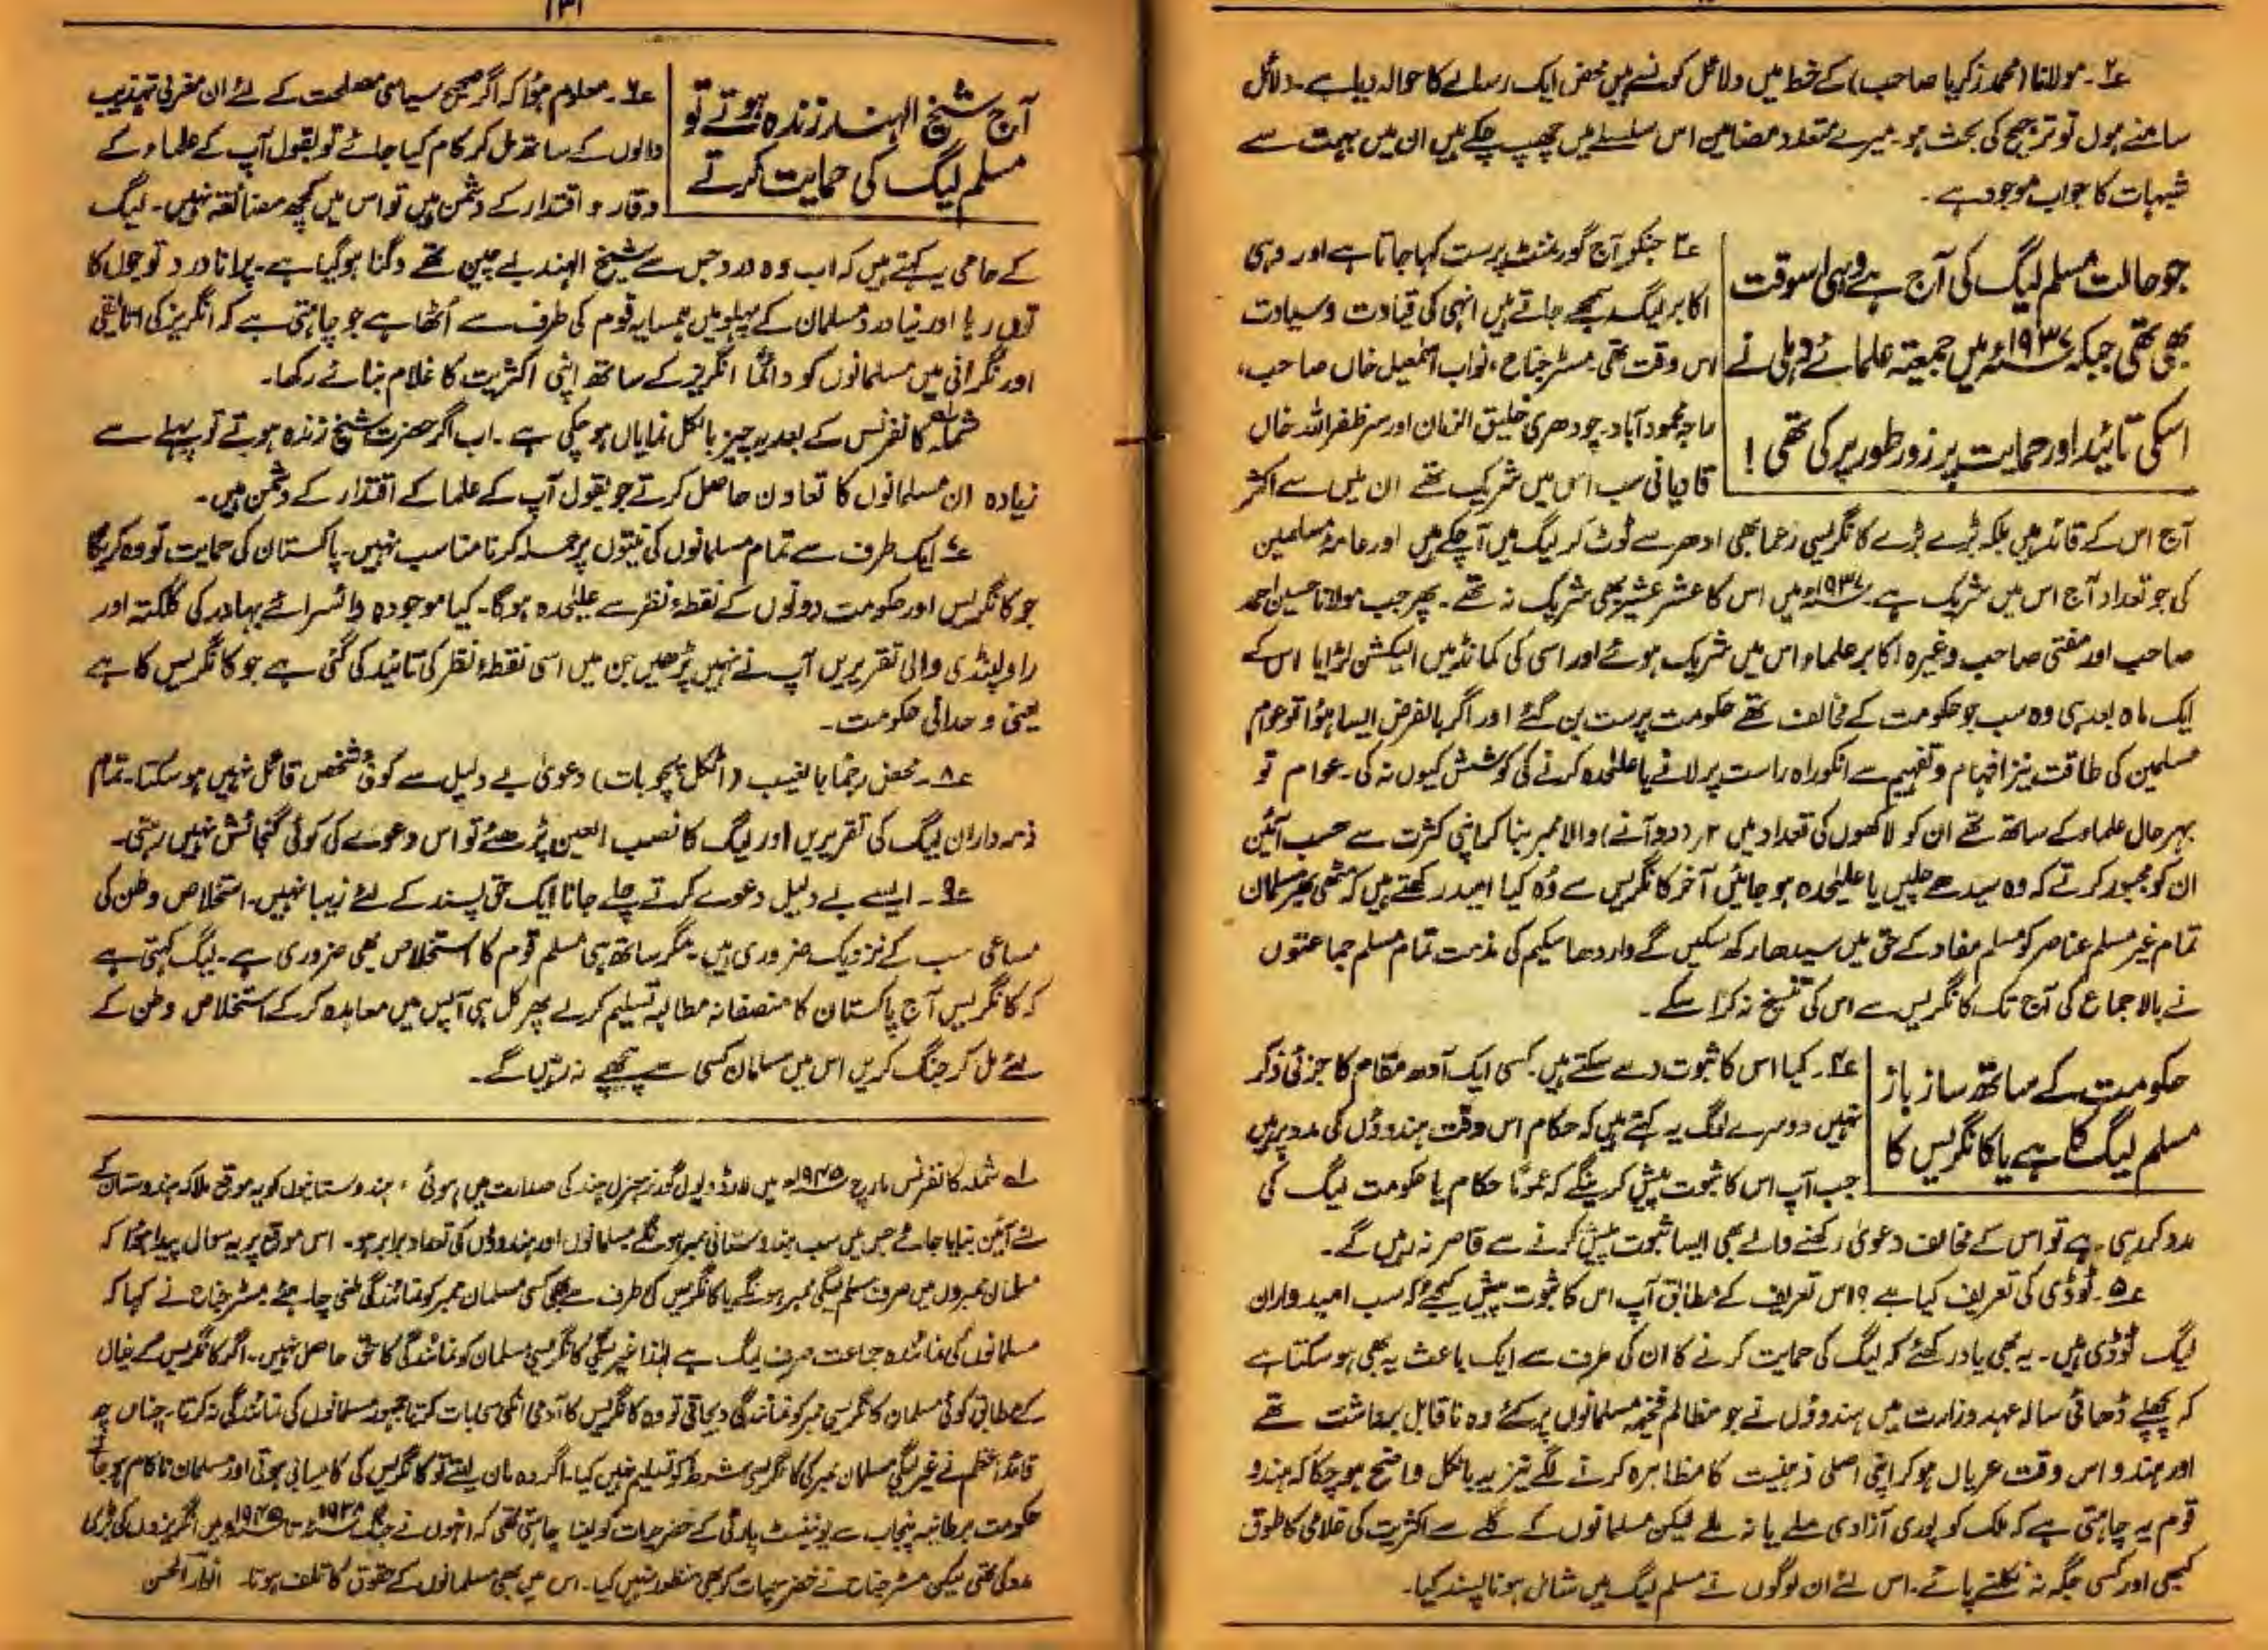 ع۲۔ مولانا (محمد زکریا صاحب) کے خط میں دلائل کونسے ہیں محض ایک رسالے کا حوالہ دیا ہے۔ دلائل
سامنے ہوں تو ترجیح کی بحث ہو۔ میرے متعدد مضامین اس سلسلے میں چھپ چکے ہیں ان میں بہت سے
شبہات کا جواب موجود ہے۔
جو حالت مسلم لیگ کی آج ہے وہی اسوقت
بھی تھی جبکہ ۱۹۳۷ء میں جمیعتہ علمائے دہلی نے
اسکی تائید اور حمایت پر زور طور پر کی تھی!
ع۳ جنکو آج گورنمنٹ پرست کہا جاتا ہے اور وہی
اکابر لیگ سمجھے جاتے ہیں انہی کی قیادت و سیادت
اس وقت تھی۔ مسٹر جناح، نواب اسمٰعیل خاں صاحب،
راجہ محمود آباد۔ چودھری خلیق الزمان اور سر ظفر اللہ خاں
قادیانی سب اس میں شریک تھے ان میں سے اکثر
آج اس کے قائد ہیں بلکہ بڑے بڑے کانگریسی زعما بھی ادھر سے ٹوٹ کر لیگ میں آ چکے ہیں اور عامۂ مسلمین
کی جو تعداد آج اس میں شریک ہے۔ ۱۹۳۷ء میں اس کا عشر عشیر بھی شریک نہ تھے۔ پھر جب مولانا حسین احمد
صاحب اور مفتی صاحب وغیرہ اکابر علماء اس میں شریک ہوئے اور اسی کی کمانڈ میں الیکشن لڑایا اس کے
ایک ماہ بعد ہی وہ سب جو حکومت کے مخالف تھے حکومت پرست بن گئے اور اگر بالفرض ایسا ہؤا تو عوام
مسلمین کی طاقت نیز افہام و تفہیم سے انکو راہ راست پر لانے یا علیٰحدہ کرنے کی کوشش کیوں نہ کی۔ عوام تو
بہر حال علماء کے ساتھ تھے ان کو لاکھوں کی تعداد میں ۲ر (دو آنے) والا ممبر بنا کر اپنی کثرت سے حسب آئین
ان کو مجبور کرتے کہ وہ سیدھے چلیں یا علیٰحدہ ہو جائیں آخر کانگریس سے وُہ کیا امید رکھتے ہیں کہ مٹھی بھر مسلمان
تمام غیر مسلم عناصر کو مسلم مفاد کے حق میں سیدھا رکھ سکیں گے واردھا سکیم کی مذمت تمام مسلم جماعتوں
نے بالاجماع کی آج تک کانگریس سے اس کی تنسیخ نہ کرا سکے۔
حکومت کے ساتھ ساز باز
مسلم لیگ کا ہے یا کانگریس کا
ع۴۔ کیا اس کا ثبوت دے سکتے ہیں۔ کسی ایک آدھ مقام کا جزئی ذکر
نہیں دوسرے لوگ یہ کہتے ہیں کہ حکام اس وقت ہندوؤں کی مدد پر ہیں
جب آپ اس کا ثبوت پیش کرینگے کہ عموماً حکام یا حکومت لیگ کی
مدد کر رہی ہے تو اس کے مخالف دعویٰ رکھنے والے بھی ایسا ثبوت پیش کرنے سے قاصر نہ رہیں گے۔
ع۵۔ ٹوڈی کی تعریف کیا ہے؟ اس تعریف کے مطابق آپ اس کا ثبوت پیش کیجئے کہ سب امیدواران
لیگ ٹوڈی ہیں۔ یہ بھی یاد رکھئے کہ لیگ کی حمایت کرنے کا ان کی طرف سے ایک باعث یہ بھی ہو سکتا ہے
کہ پچھلے ڈھائی سالہ عہد وزارت میں ہندوؤں نے جو مظالم فخیمہ مسلمانوں پر کئے وہ ناقابل برداشت تھے
اور ہندو اس وقت عریاں ہو کر اپنی اصلی ذہنیت کا مظاہرہ کرنے لگے نیز یہ بالکل واضح ہو چکا کہ ہندو
قوم یہ چاہتی ہے کہ ملک کو پوری آزادی ملے یا نہ ملے لیکن مسلمانوں کے گلے سے اکثریت کی غلامی کا طوق
کبھی اور کسی جگہ نہ نکلنے پائے۔ اس لئے ان لوگوں نے مسلم لیگ میں شامل ہونا پسند کیا۔
۱۳۱
آج شیخ الہند زندہ ہوتے تو
مسلم لیگ کی حمایت کرتے
ع۶۔ معلوم ہؤا کہ اگر صحیح سیاسی مصلحت کے لئے ان مغربی تہذیب
والوں کے ساتھ مل کر کام کیا جائے تو بقول آپ کے علماء کے
وقار و اقتدار کے دشمن ہیں تو اس میں کچھ مضائقہ نہیں۔ لیگ
کے حامی یہ کہتے ہیں کہ اب وہ درد جس سے شیخ الہند بے چین تھے دگنا ہو گیا ہے۔ پرانا درد تو جوں کا
توں رہا اور نیا درد مسلمان کے پہلو میں ہمسایہ قوم کی طرف سے اُٹھا ہے جو چاہتی ہے کہ انگریز کی اتالیقی
اور نگرانی میں مسلمانوں کو دائماً انگریز کے ساتھ اپنی اکثریت کا غلام بنائے رکھا۔
شملہ کانفرنس کے بعد یہ چیز بالکل نمایاں ہو چکی ہے۔ اب اگر حضرت شیخ زندہ ہوتے تو پہلے سے
زیادہ ان مسلمانوں کا تعاون حاصل کرتے جو بقول آپ کے علما کے اقتدار کے دشمن ہیں۔
ع۷ ایک طرف سے تمام مسلمانوں کی نیتوں پر حملہ کرنا مناسب نہیں۔ پاکستان کی حمایت تو وہ کریگا
جو کانگریس اور حکومت دونوں کے نقطۂ نظر سے علیٰحدہ ہوگا۔ کیا موجودہ وائسرائے بہادر کی کلکتہ اور
راولپنڈی والی تقریریں آپ نے نہیں پڑھیں جن میں اسی نقطۂ نظر کی تائید کی گئی ہے جو کانگریس کا ہے
یعنی وحدانی حکومت۔
ع۸۔ محض رجماً بالغیب (اٹکل پچو بات) دعویٰ بے دلیل سے کوئی شخص قائل نہیں ہو سکتا۔ تمام
ذمہ داران لیگ کی تقریریں اور لیگ کا نصب العین پڑھئے تو اس دعوے کی کوئی گنجائش نہیں رہتی۔
ع۹۔ ایسے بے دلیل دعوے کرتے چلے جانا ایک حق پسند کے لئے زیبا نہیں۔ استخلاص وطن کی
مساعی سب کے نزدیک ضروری ہیں۔ مگر ساتھ ہی مسلم قوم کا استخلاص بھی ضروری ہے۔ لیگ کہتی ہے
کہ کانگریس آج پاکستان کا منصفانہ مطالبہ تسلیم کرلے پھر کل ہی آپس میں معاہدہ کر کے استخلاص وطن کے
لئے مل کر جنگ کریں اس میں مسلمان کسی سے پیچھے نہ رہیں گے۔
لہ شملہ کانفرنس مارچ ۱۹۴۵ء میں لارڈ ویول گورنر جنرل ہند کی صدارت میں ہوئی، ہندوستانیوں کو یہ موقع ملا کہ ہندوستان کے
لئے آئین بنایا جائے جس میں سب ہندوستانی ممبر ہونگے مسلمانوں اور ہندوؤں کی تعداد برابر ہو۔ اس موقع پر یہ سوال پیدا ہؤا کہ
مسلمان ممبروں میں صرف مسلم لیگی ممبر ہونگے یا کانگریس کی طرف سے بھی کسی مسلمان ممبر کو نمائندگی ملنی چاہئے مسٹر جناح نے کہا کہ
مسلمانوں کی نمائندہ جماعت صرف لیگ ہے لہٰذا غیر لیگی کانگریسی مسلمان کو نمائندگی کا حق حاصل نہیں۔ اگر کانگریس کے خیال
کے مطابق کوئی مسلمان کانگریسی ممبر کو نمائندگی دیجاتی تو وہ کانگریس کا آدمی انکی سی بات کرتا جمہور مسلمانوں کی نمائندگی نہ کرتا۔ چنانچہ
قائد اعظم نے غیر لیگی مسلمان ممبر کی کانگریسی شرط کو تسلیم نہیں کیا۔ اگر وہ مان لیتے تو کانگریس کی کامیابی ہوتی اور مسلمان ناکام ہو جاتے
حکومت برطانیہ پنجاب سے یونینسٹ پارٹی کے خضر حیات کو لینا چاہتی تھی کہ انہوں نے جنگ ۱۹۳۸ء تا ۱۹۴۵ء میں انگریزوں کی بڑی
مدد کی تھی لیکن مسٹر جناح نے خضر حیات کو بھی منظور نہیں کیا۔ اس میں بھی مسلمانوں کے حقوق کا تلف ہونا۔ انوار الحسن